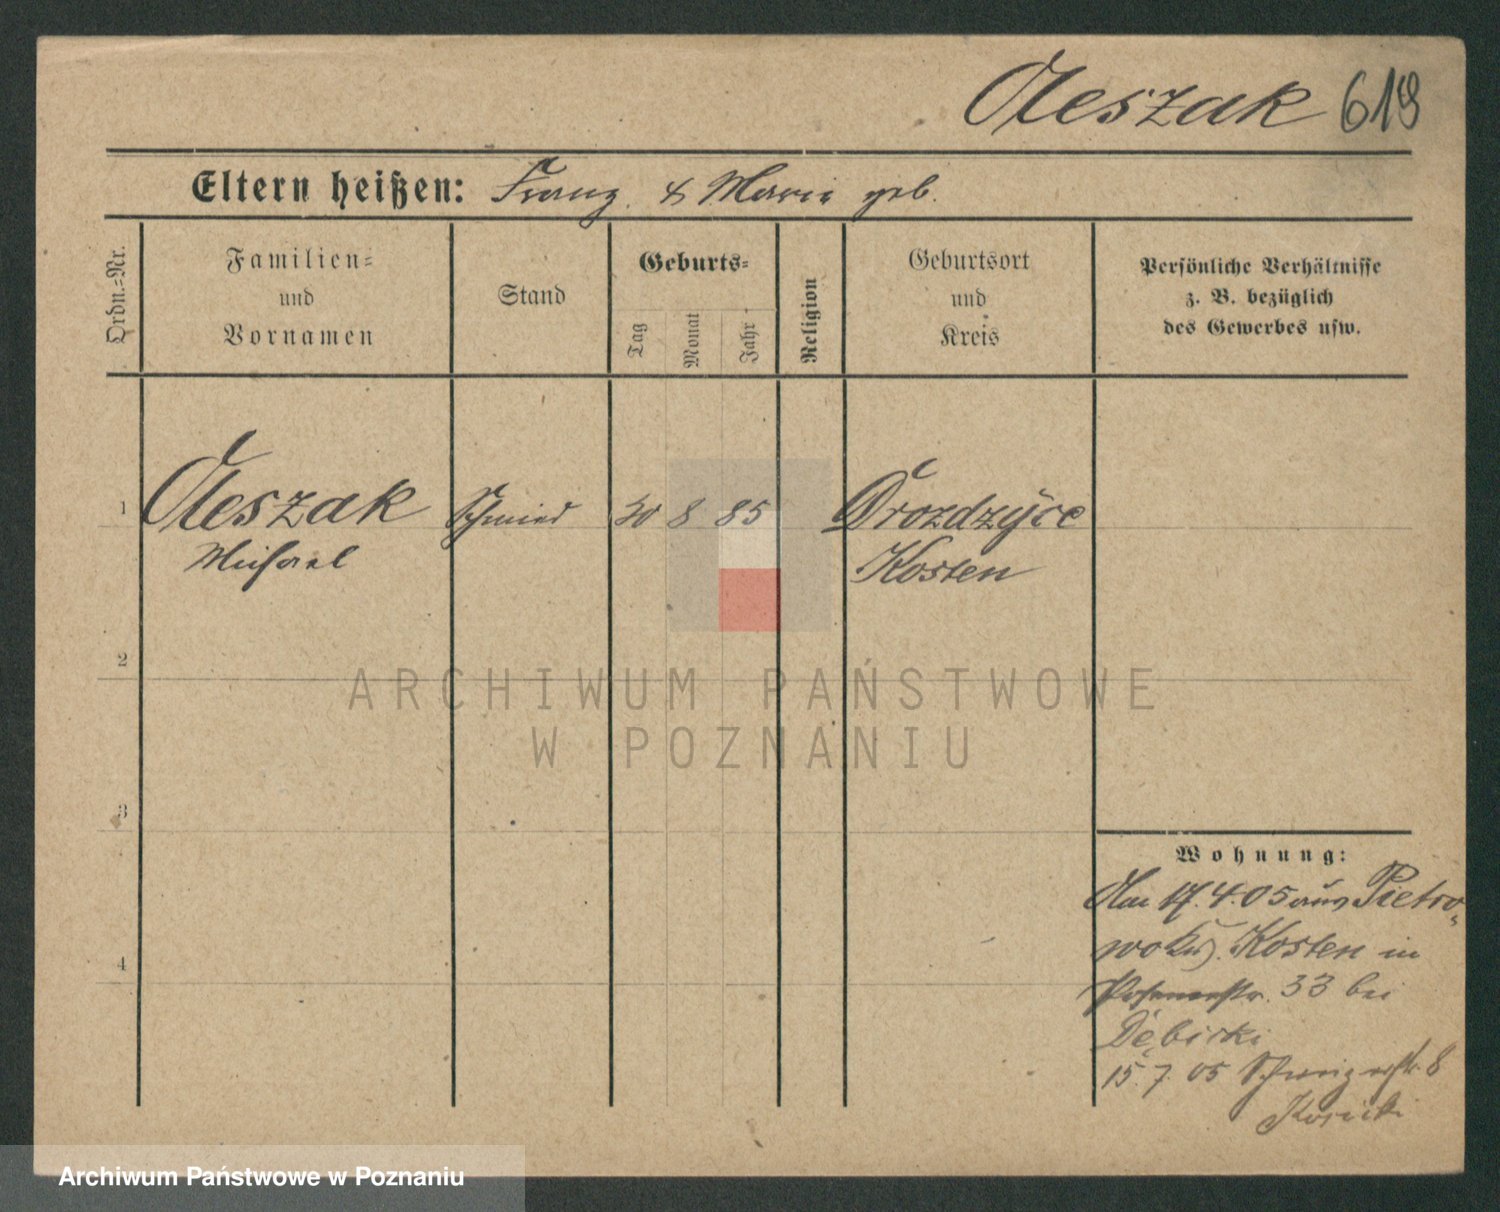 Oleszak 619
Eltern heißen: Franz & Marie geb.
Ordn.-Nr.
Familien- und Vornamen
Stand
Geburts-
Tag
Monat
Jahr
Religion
Geburtsort und Kreis
Persönliche Verhältnisse
z. B. bezüglich
des Gewerbes usw.
1 Oleszak Schmied 30 8 85 Drozdzyce
Michael Kosten
2
3
4
Wohnung:
17.4.05 aus Pietro-
wo Kosten in
33 bei
Dębicki
15.7.05 8
ARCHIWUM PAŃSTWOWE
W POZNANIU
Archiwum Państwowe w Poznaniu